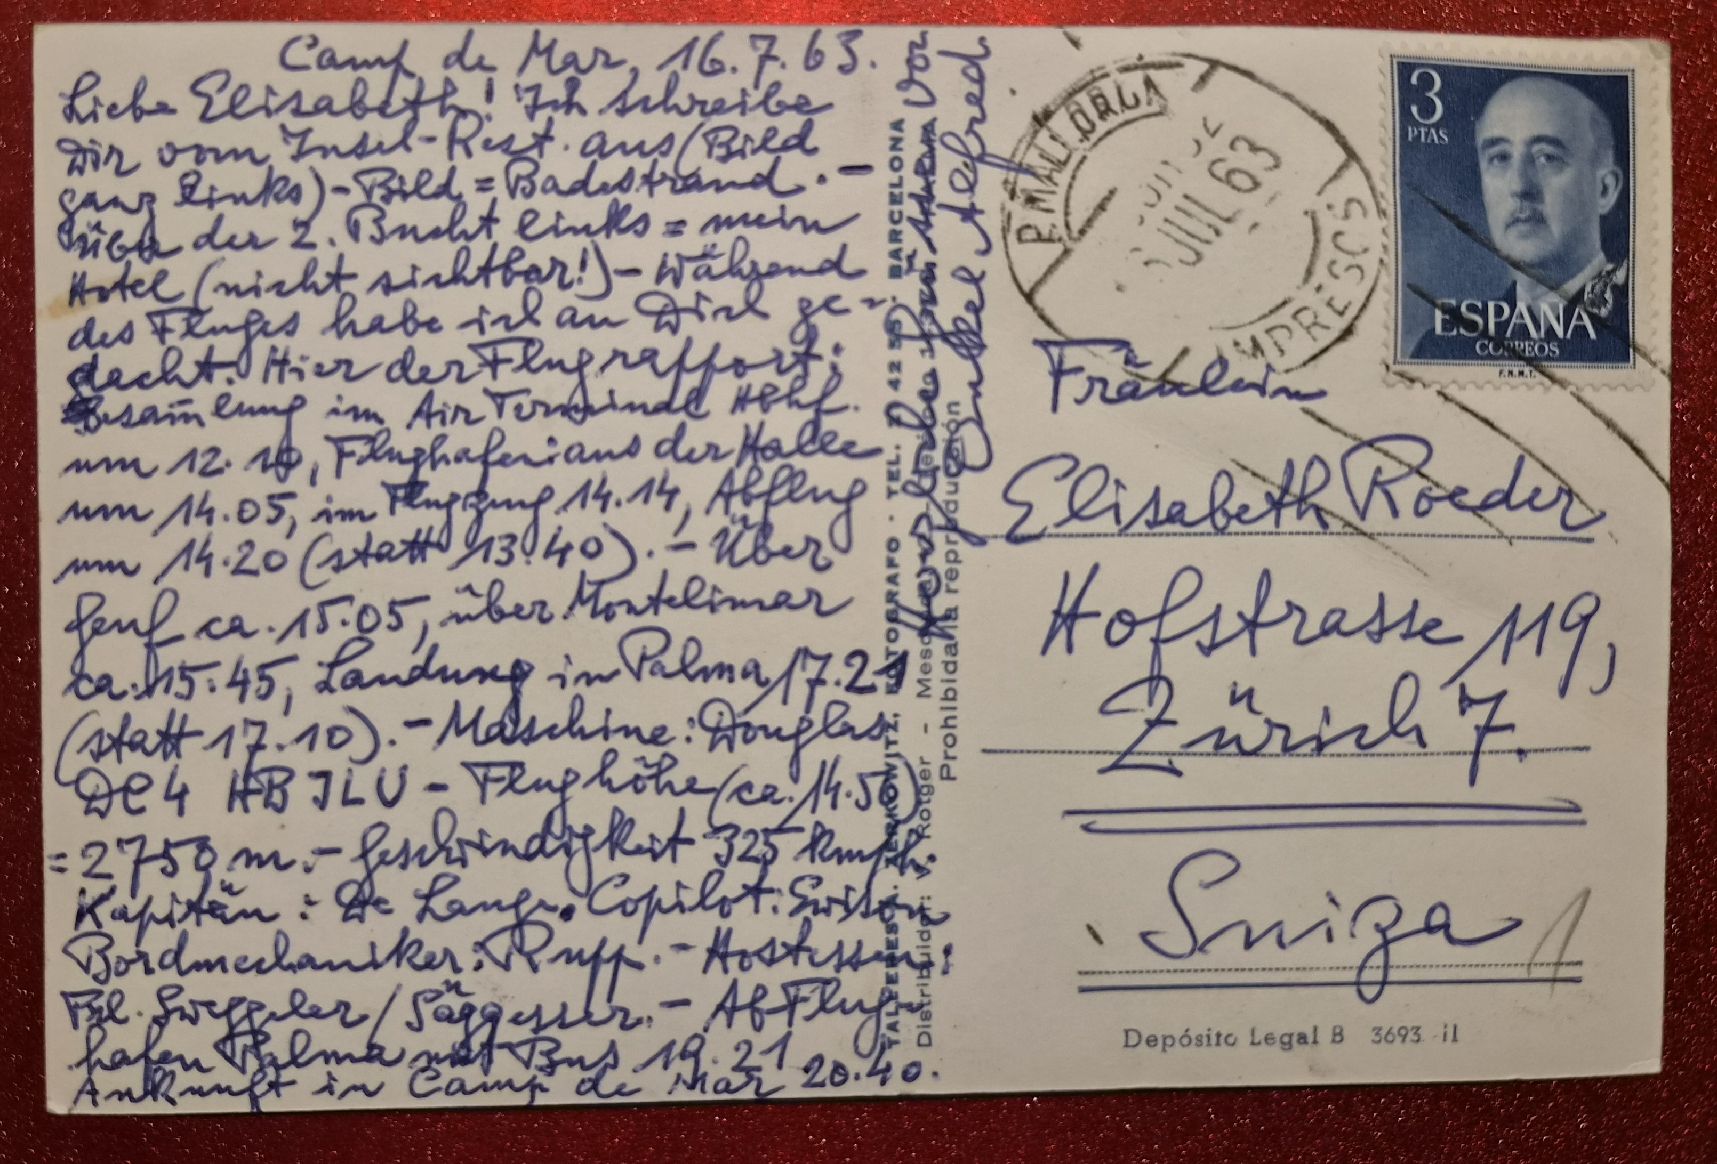 Camp de Mar, 16.7.63.
Liebe Elisabeth! Ich schreibe
Dir vom Insel-Rest. aus (Bild
ganz links) - Bild = Badestrand. -
Über der 2. Bucht links = mein
Hotel (nicht sichtbar!) - Während
des Fluges habe ich an Dich ge-
dacht. Hier der Flugrapport:
Besam̄lung im Air Terminal Hbhf.
um 12.10, Flughafen: aus der Halle
um 14.05, im Flugzeug 14.14, Abflug
um 14.20 (statt 13.40). - Über
Genf ca. 15.05, über Montelimar
ca. 15.45, Landung in Palma 17.21
(statt 17.10). - Maschine: Douglas
DC 4 HB ILU - Flughöhe (ca. 14.50)
= 2750 m. - Geschwindigkeit 325 km/h.
Kapitän: De Lange. Copilot:
Bordmechaniker: Rupp. - Hostessen:
Frl. / Säggesser. - Ab Flug-
hafen Palma mit Bus 19.21
Ankunft in Camp de Mar 20.40.
Herz liebe Von
Alfred.
TALLERES A. ZERKOWITZ, FOTOGRAFO - TEL. BARCELONA
Distribuidor: V. Rotger -
Prohibida la reproducción
P. MALLORCA
JUL 63
IMPRESOS
3
PTAS
ESPAÑA
CORREOS
F.N.M.T.
Fräulein
Elisabeth Roeder
Hofstrasse 119,
Zürich 7.
Suiza
Depósito Legal B 3693